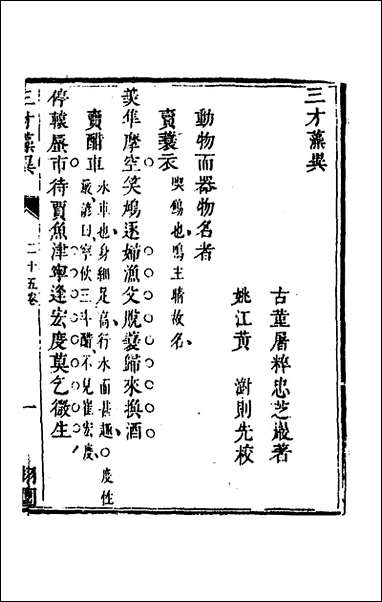 三才藻異
古董屠粹忠芝巖著
姚江黃 澍則先校
動物而器物名者
賣蓑衣 鷂也鳴主晴故名
羨隼摩空笑鳩逐婦漁父脫蓑歸來換酒
賣醋車 水車也身細足高行水面甚趣○度性
嚴諺曰寧飲三斗醋不見崔宏度
停轅廛市待賈魚津寧逢宏度莫乞微生
三才藻異 二十五卷 一